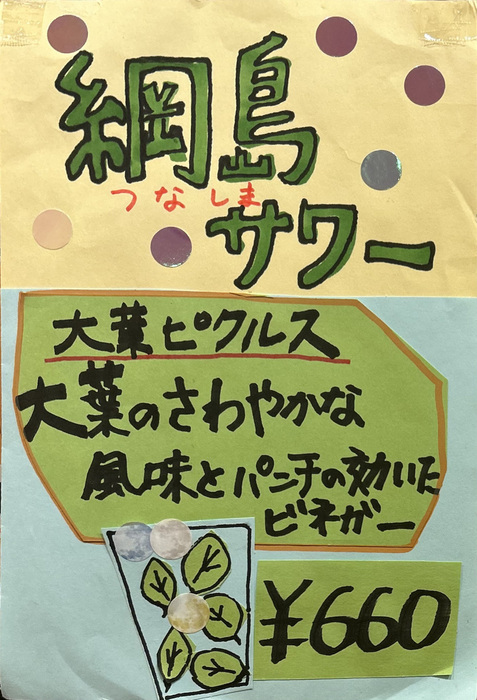 綱島
つなしま
サワー
大葉ピクルス
大葉のさわやかな
風味とパンチの効いた
ビネガー
¥660